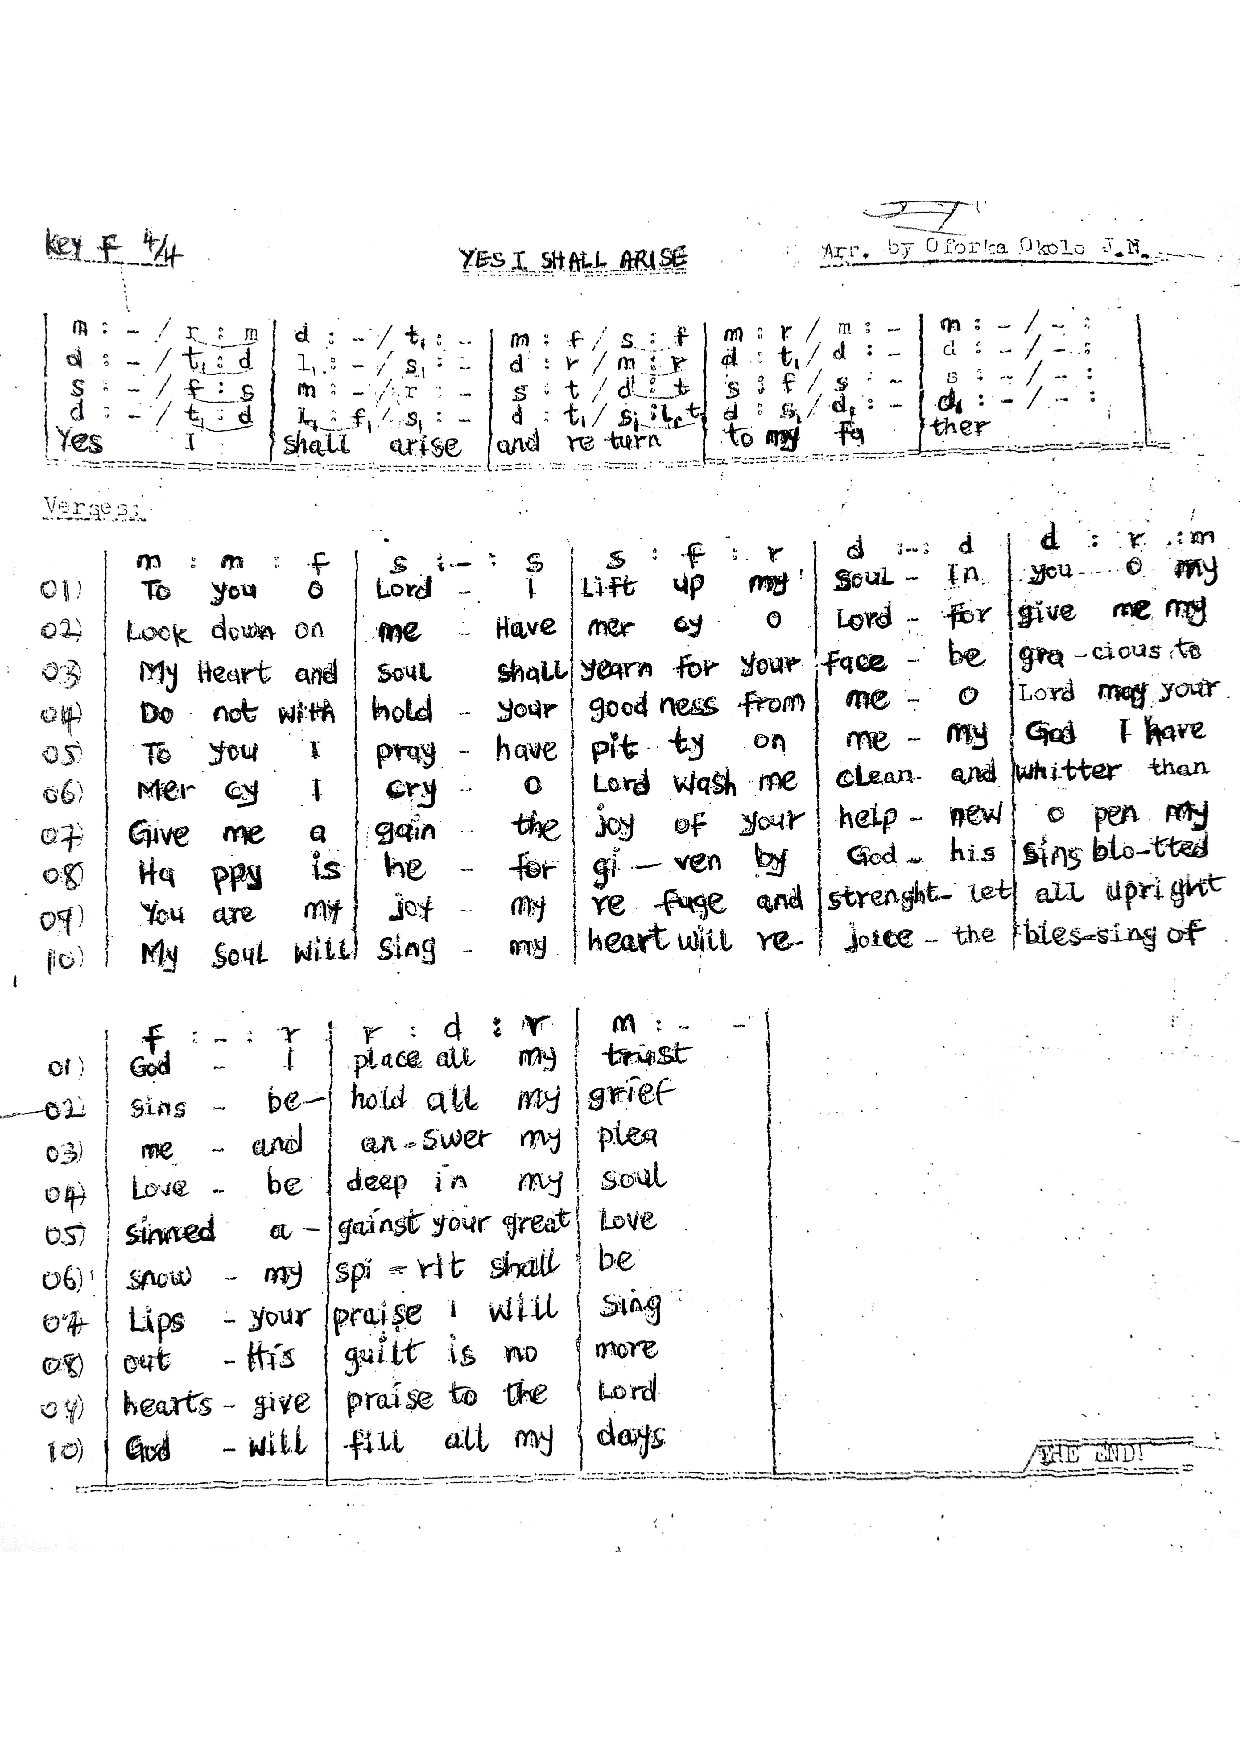 Key F 4/4
YES I SHALL ARISE
Arr. by Oforka Okolo J.N.
m : - / r : m | d : - / t₁ : - | m : f / s : f | m : r / m : - | m : - / - :
d : - / t₁ : d | l₁ : - / s₁ : - | d : r / m : r | d : t₁ / d : - | d : - / - :
s : - / f : s | m : - / r : - | s : t / d' : t | s : f / s : - | s : - / - :
d : - / t₁ : d | l₁ : f₁ / s₁ : - | d : t₁ / s₁ : l₁ t₁ | d : s₁ / d₁ : - | d₁ : - / - :
Yes I | shall arise | and re turn | to my fa | ther
Verses:
m : m : f | s : - : s | s : f : r | d : - : d | d : r : m
01) To you O | Lord - I | Lift up my | Soul - In | you O my
02) Look down on | me - Have | mer cy O | Lord - for | give me my
03) My Heart and | soul shall | yearn for your | face - be | gra - cious to
04) Do not with | hold - your | good ness from | me - O | Lord may your
05) To you I | pray - have | pit ty on | me - my | God I have
06) Mer cy I | cry - O | Lord wash me | clean - and | whitter than
07) Give me a | gain - the | joy of your | help - new | O pen my
08) Ha ppy is | he - for | gi - ven by | God - his | sins blo-tted
09) You are my | joy - my | re fuge and | strenght - let | all upright
10) My Soul will | sing - my | heart will re- | joice - the | bles-sing of
f : - : r | r : d : r | m : - -
01) God - I | place all my | trust
02) sins - be- | hold all my | grief
03) me - and | an-swer my | plea
04) Love - be | deep in my | soul
05) sinned a - | gainst your great | Love
06) snow - my | spi = rit shall | be
07) Lips - your | praise I will | sing
08) out - His | guilt is no | more
09) hearts - give | praise to the | Lord
10) God - will | fill all my | days
THE END!